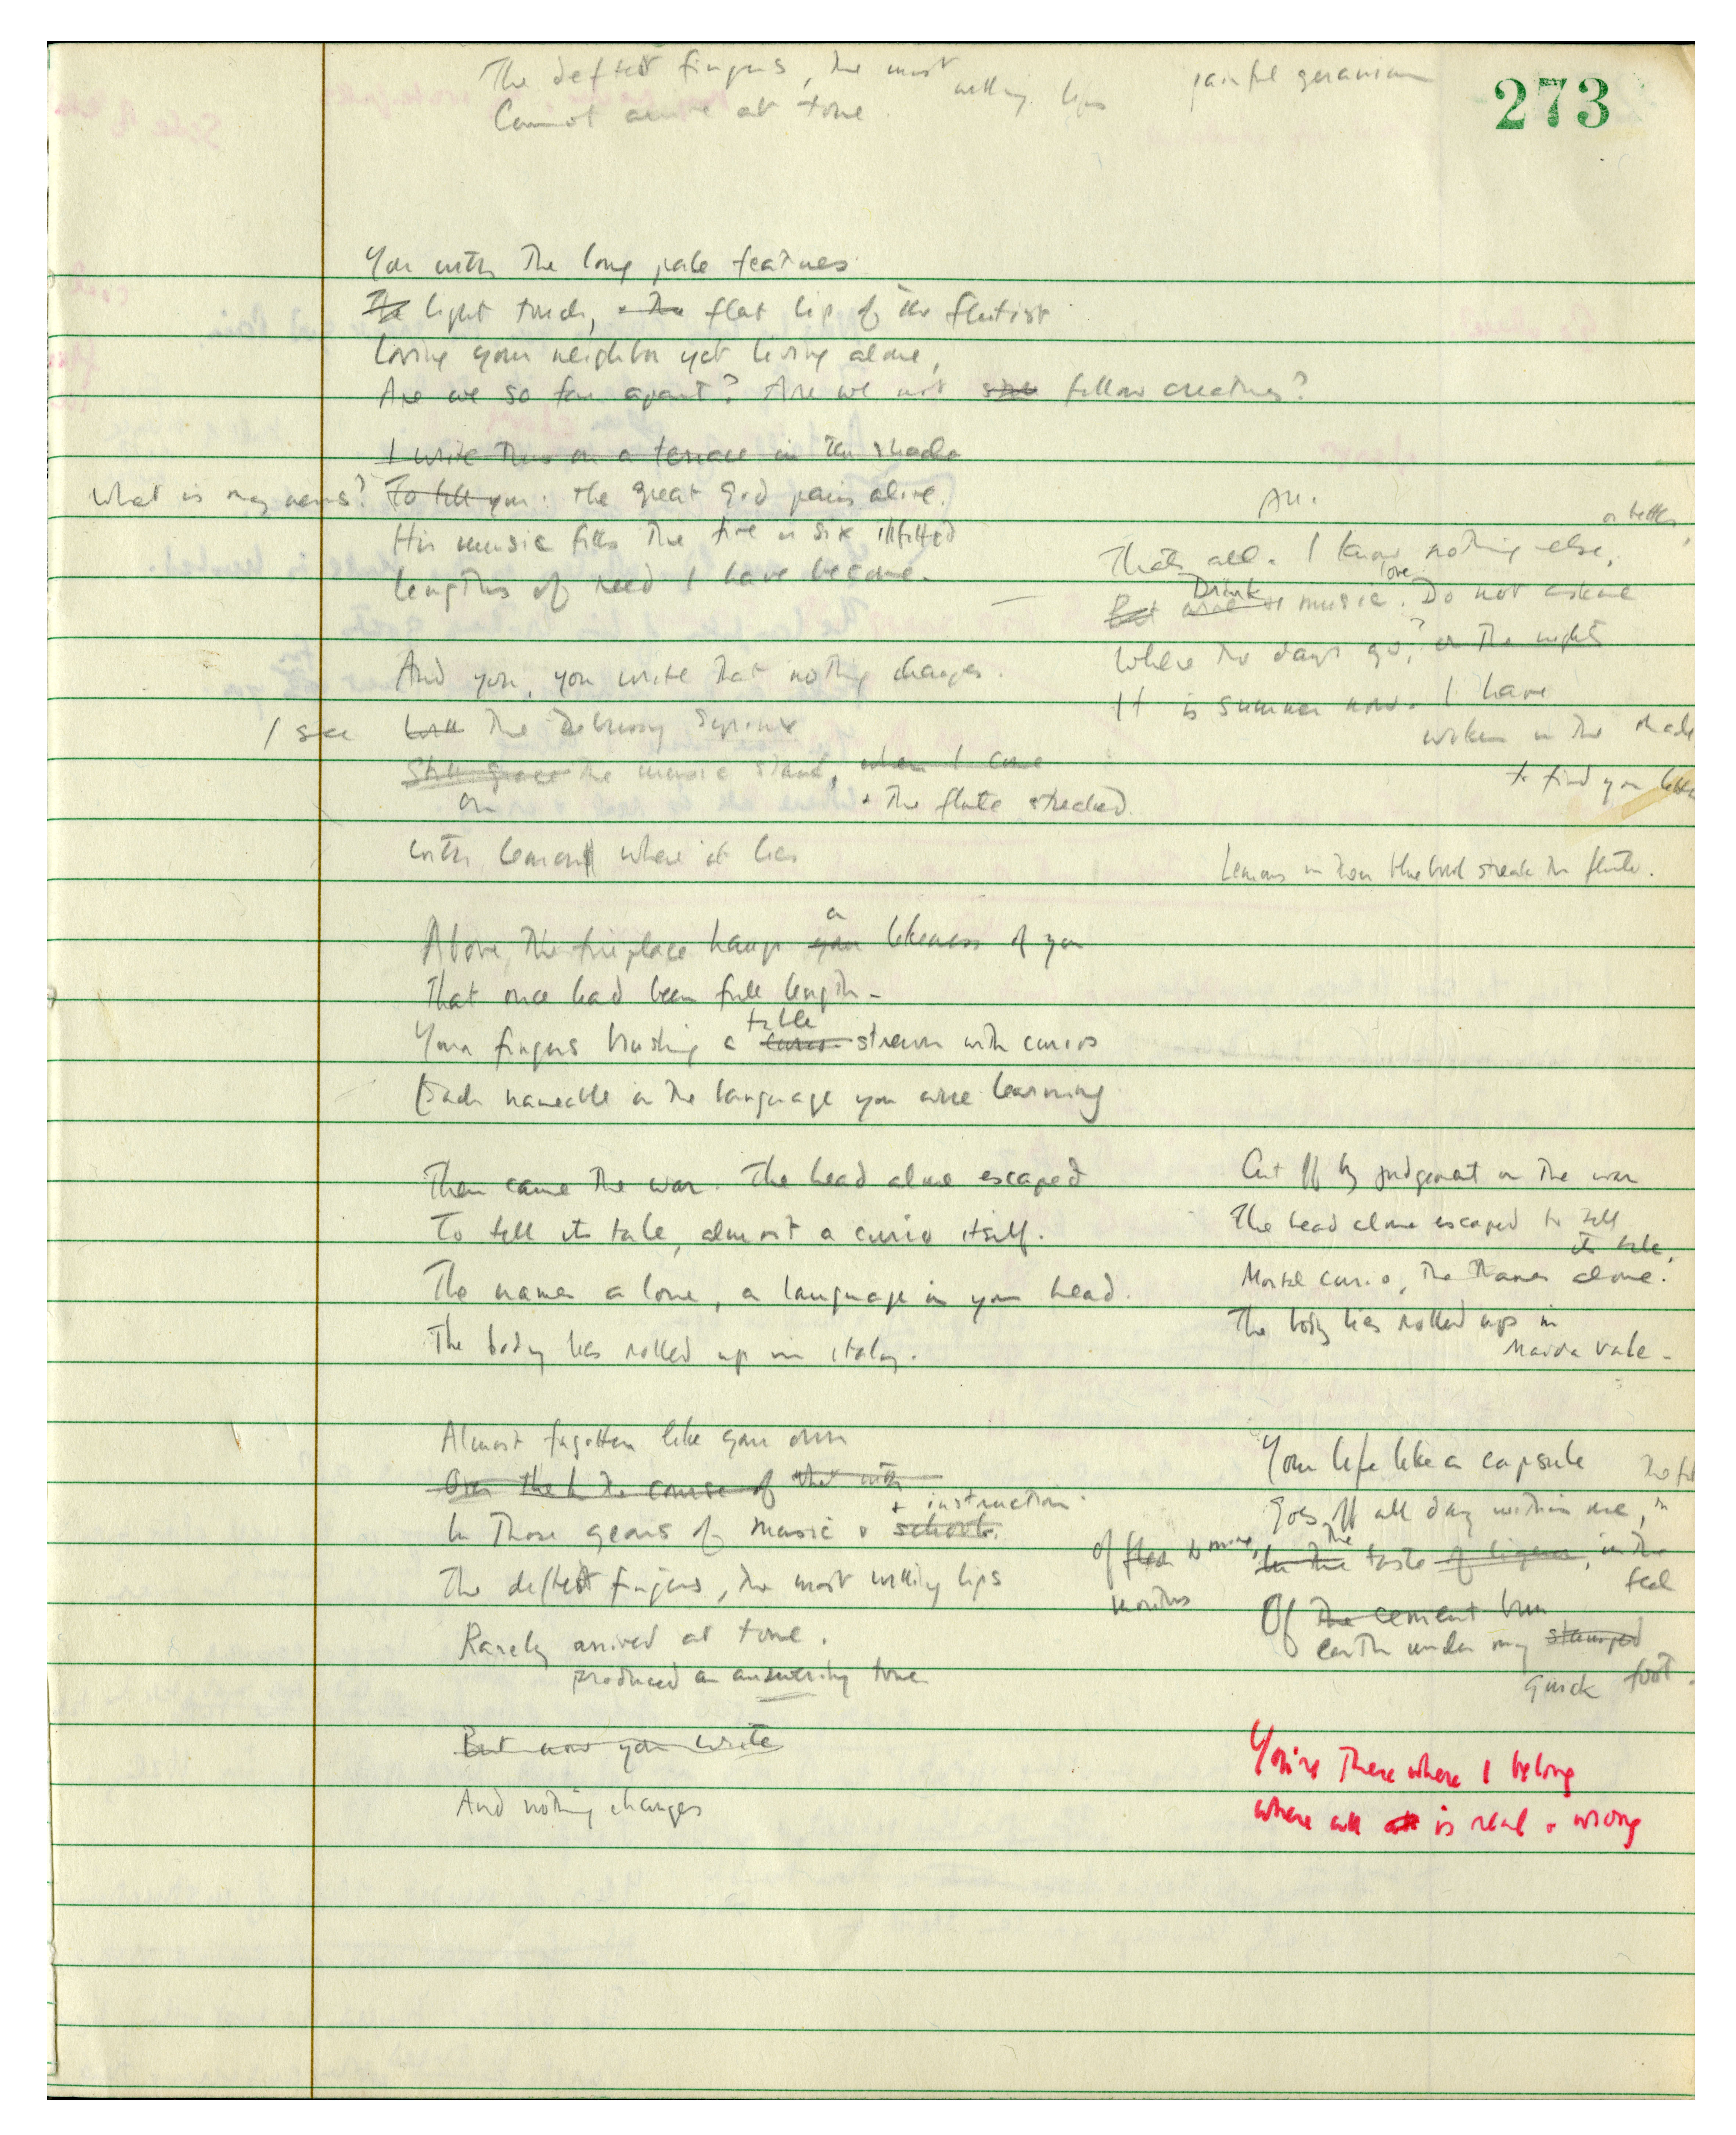 The deftest fingers, the most willing lips
Cannot arrive at tone.
painful geranium
273
You with the long pale features
The light touch, + the flat lip of the flutist
Loving your neighbor yet living alone,
Are we so far apart? Are we not fellow creatures?
I write this on a terrace in the shade
What is my news? To tell you: the great god pain is alive.
His music fills the five or six ill fitted
lengths of reed I have become.
And you, you write that nothing changes.
I see the Debussy Syrinx
Still grace the music stand, when I come
on + the flute streaked
with lemon where it lies
All.
That's all. I know nothing else, or better,
But wine + music. Drink love. Do not ask me
Where the days go? or the nights
It is summer now. I have
woken in the shade
to find your letter
Lemons in their blue bowl streak the flute.
Above the fireplace hangs your a likeness of you
That once had been full length –
Your fingers brushing a curio table strewn with curios
Each nameable in the language you were learning
Then came the war. The head alone escaped
To tell its tale, almost a curio itself.
The names alone, a language in your head.
The body lies rolled up in Italy.
Cut off by judgment or the war
The head alone escaped to tell
its tale.
Mortal curio, the Thames alone.
The body lies rolled up in
Maida Vale –
Almost forgotten like your own
Over the In the course of that with
In those years of music + schools. + instruction
The deftest fingers, the most willing lips
Rarely arrived at tone.
produced an answering tone
But now you write
And nothing changes
Your life like a capsule
Goes off all day within me, in
In the the taste of liqueur, in the
feel
Of the cement
earth under my stamped
quick foot.
You're there where I belong
Where all is real + wrong